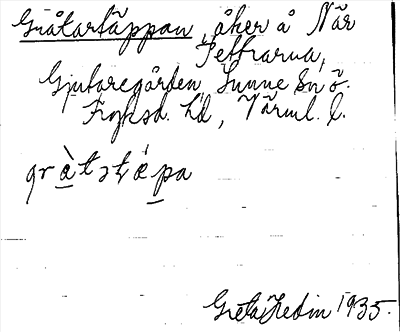 Gråtartäppan, åker å När
Pettrarna,
Gjutaregården, Sunne sn ö.
Fryksd. hd, Värml. l.
gràtstǽpa
Greta Hedin 1935.